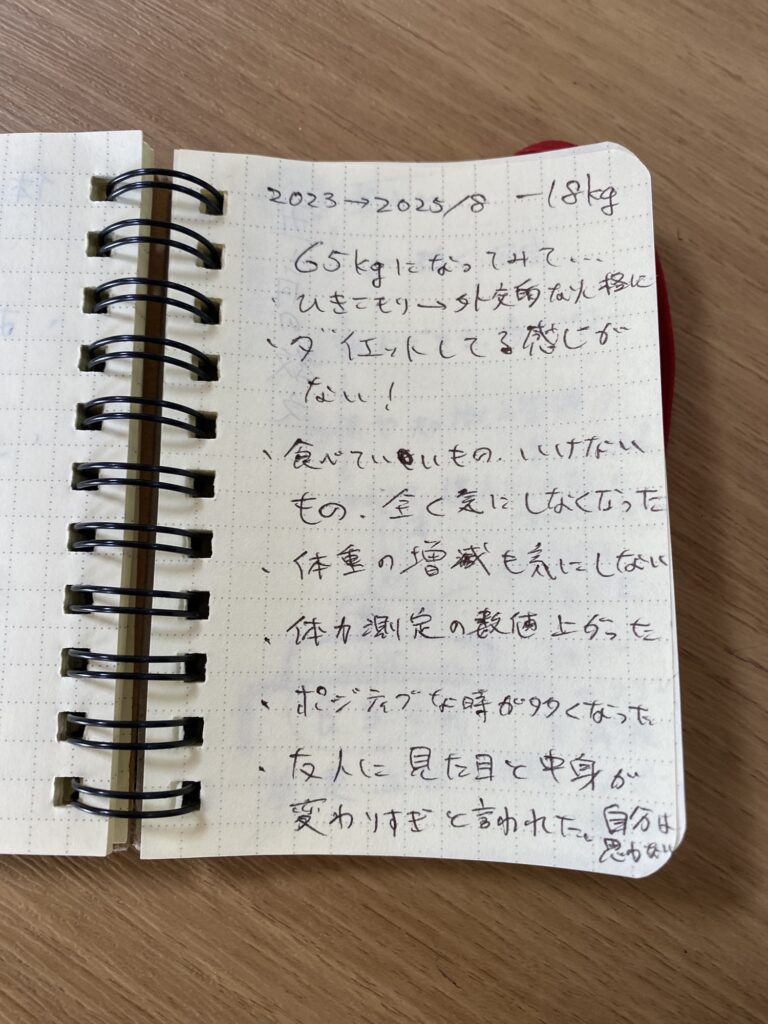 2023→2025/8 −18kg
65kgになってみて…
・ひきこもり→外交的な性格に
・ダイエットしてる感じが
ない!
・食べていいもの.いけない
もの.全く気にしなくなった
・体重の増減も気にしない
・体力測定の数値上がった
・ポジティブな時が多くなった
・友人に見た目と中身が
変わりすぎと言われた。自分は
思わない